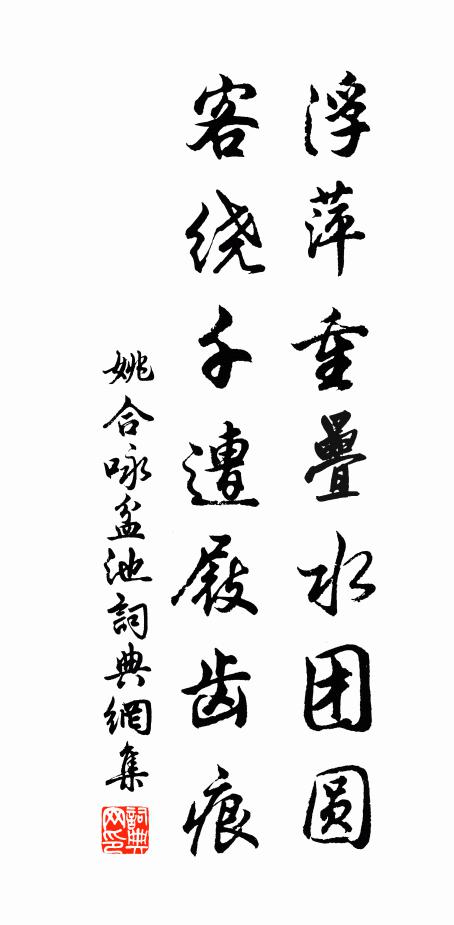 浮萍重疊水团圆
客绕千遭屐齿痕
姚合咏盆池詞典網集
詞典网印